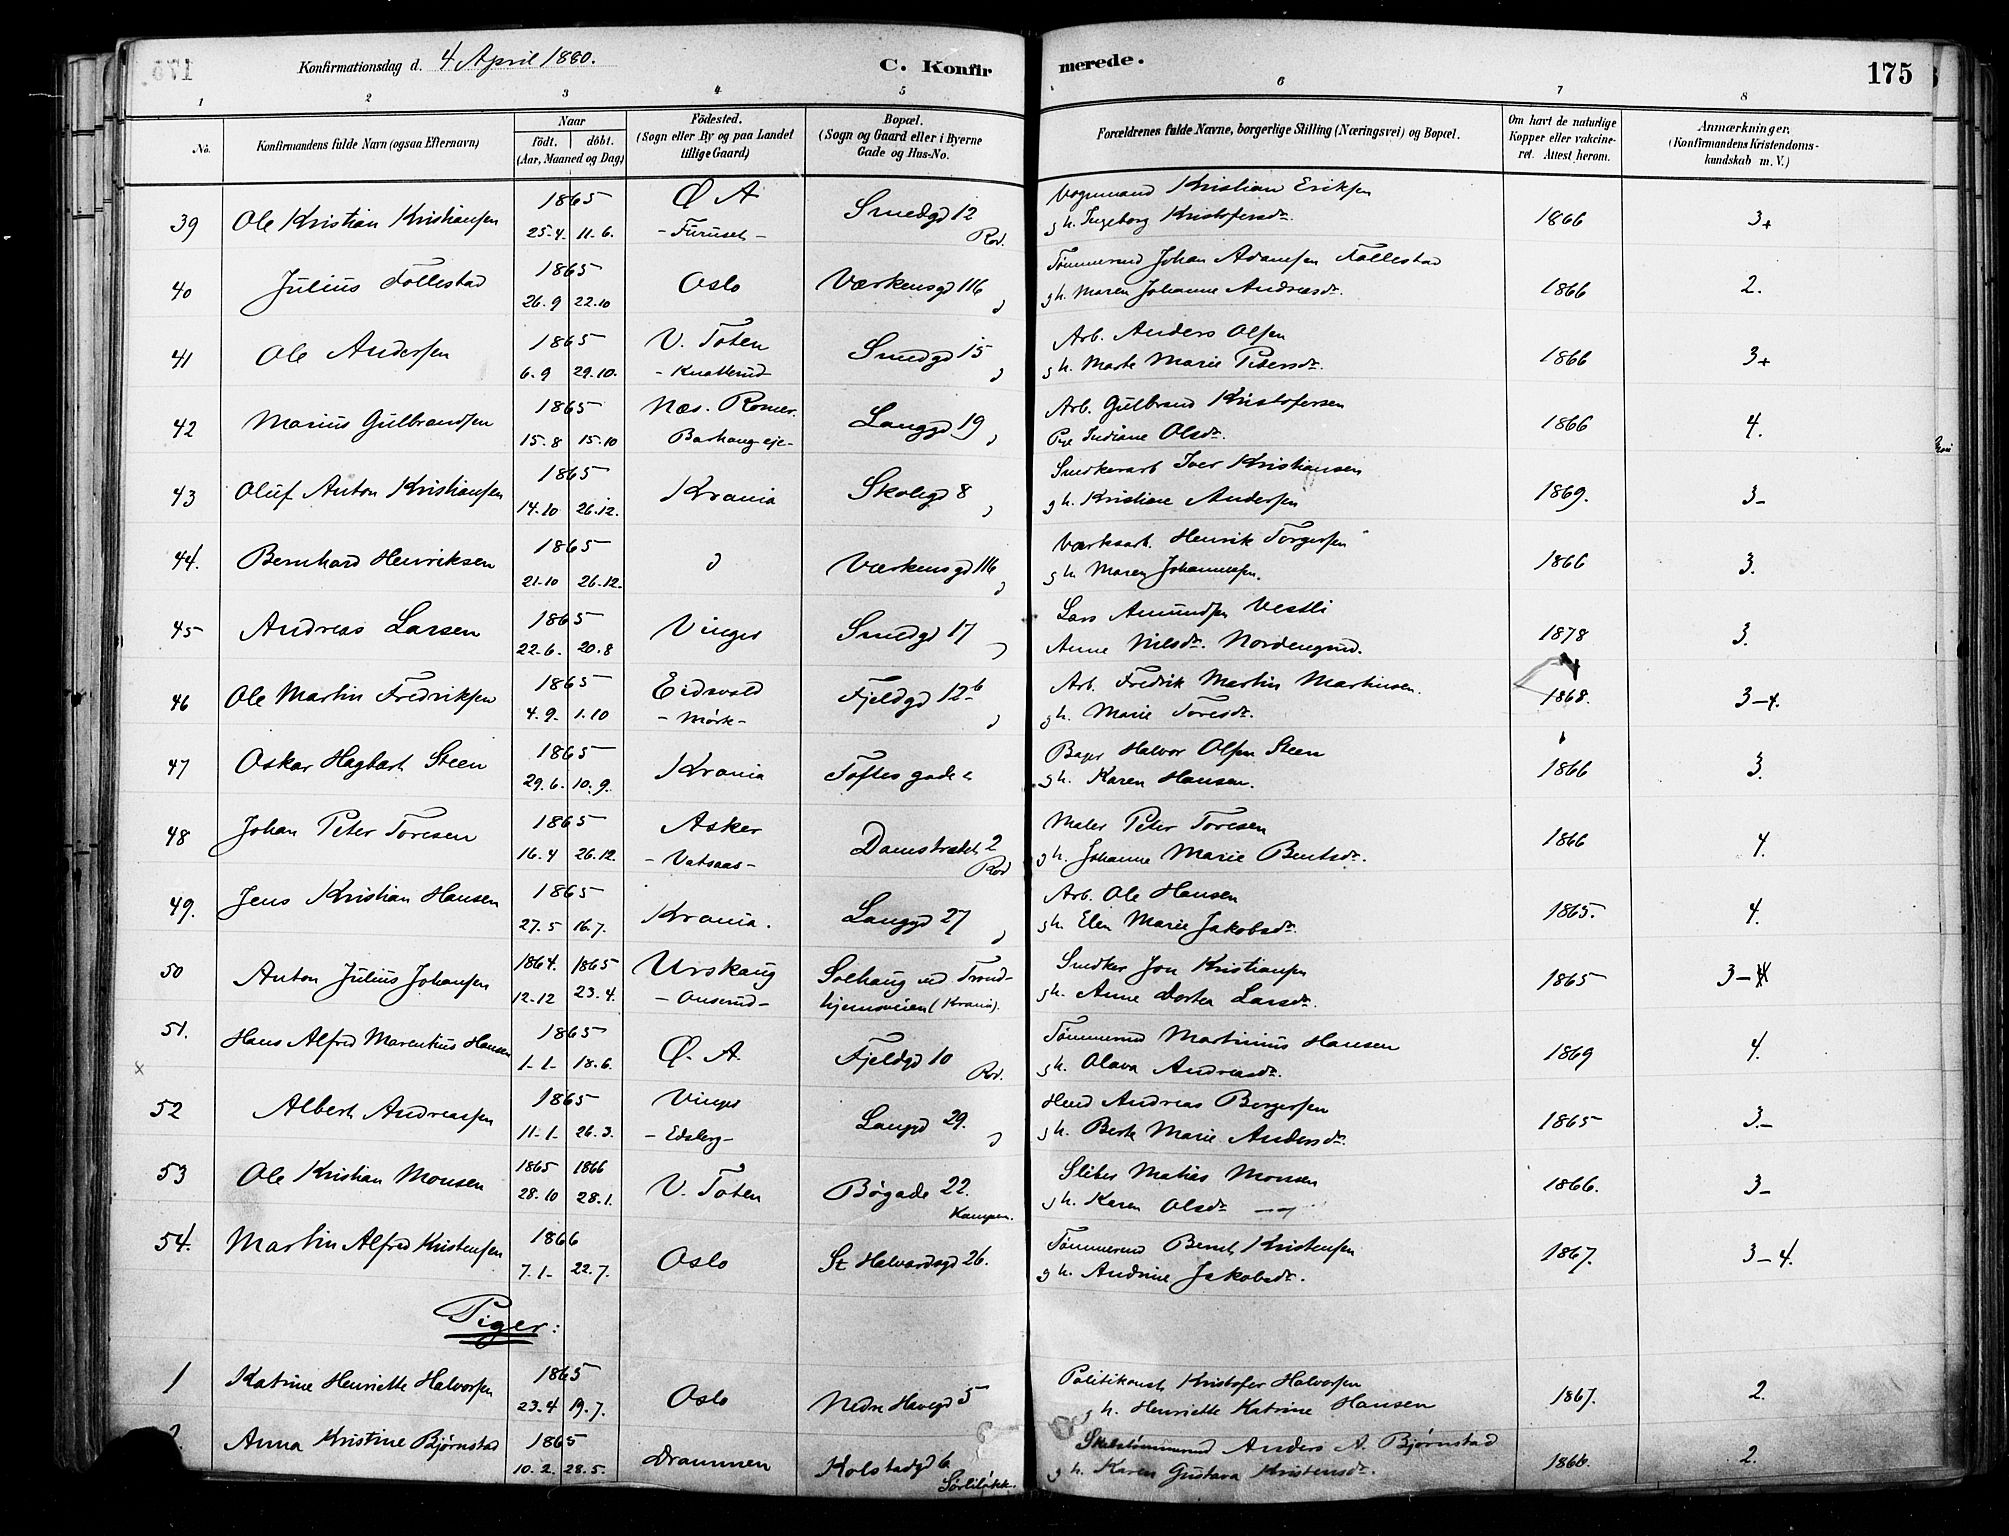 Konfirmationsdag d. 4 April 1880.
C. Konfirmerede.
175
1 2 3 4 5 6 7 8
No.
Konfirmandens fulde Navn (ogsaa Efternavn)
Naar
födt. döbt.
(Aar, Maaned og Dag)
Födested.
(Sogn eller By og paa Landet
tillige Gaard)
Bopæl.
(Sogn og Gaard eller i Byerne
Gade og Hus-No.
Forældrenes fulde Navne, borgerlige Stilling (Næringsvei) og Bopæl.
Om havt de naturlige
Kopper eller vakcine-
ret. Attest herom.
Anmærkninger.
(Konfirmandens Kristendoms-
kundskab m. V.)
39 Ole Kristian Kristiansen 1865 25-4. 11.6. Ø A - Furuset - Smedgd 12 Rod.
Vognmand Kristian Eriksen
g h. Ingeborg Kristofersdr. 1866 3+
40 Julius Follestad 1865 26.9 22.10 Oslo Værkensgd 116
Tømmermd Johan Adamsen Follestad
g h. Maren Johanne Andreasdr. 1866 2.
41 Ole Andersen 1865 6.9 29.10. V. Toten - Knatterud - Smedgd 15
Arb. Anders Olsen
g h. Marte Marie Petersdr. 1866 3+
42 Marius Gulbrandsen 1865 15.8 15.10 Næs. Romer. Barhaug eje- Langgd 19
Arb. Gulbrand Kristofersen
Pige Indiane Olsdr. 1866 4.
43 Oluf Anton Kristiansen 1865 14.10 26.12. Krania Skolegd 8
Snedkerarb Iver Kristiansen
g h. Kristiane Andersen 1869. 3-
44. Bernhard Henriksen 1865 21.10 26.12. Værkensgd 116
Værksarb. Henrik Torgersen
g h. Maren Johannesen. 1866 3.
45 Andreas Larsen 1865 22.6. 20.8 Vinger Smedgd 17
Lars Amundsen Vestli
Anne Nilsdr. Nordengrud. 1878 3.
46 Ole Martin Fredriksen 1865 4.9. 1.10 Eidsvold - Mørk - Fjeldgd 12 b
Arb. Fredrik Martin Martinsen.
g h. Marie Toresdr. 1868. 3-4.
47 Oskar Hagbart Steen 1865 29.6. 10.9. Krania Toftes gade
Bager Halvor Olsen Steen
g h. Karen Hansen. 1866 3.
48 Johan Peter Toresen 1865 16.4 26.12. Asker - Vatsaas - Damstrædet 2 Rod
Maler Peter Toresen
g h. Johanne Marie Bentsdr. 1866 4.
49. Jens Kristian Hansen 1865 27.5 16.7. Krania. Langgd 27
Arb. Ole Hansen
g h. Elen Marie Jakobsdr. 1865. 4.
50 Anton Julius Johansen 1864. 1865 12-12 23.4. Urskaug - Onserud - Solhaug ved Trond-
hjemsveien (Krania).
Snedker Jon Kristiansen
g h. Anne Dortea Larsdr. 1865 3-
51. Hans Alfred Marentius Hansen 1865 1-1- 18.6. Ø. A. Fjeldgd 10 Rod.
Tømmermd Martinius Hansen
g h. Olava Andreasdr. 1869 4.
x
52 Albert Andreassen 1865 11-1- 26.3. Vinger - Edsberg - Langgd 29.
Hmd Andreas Bergersen
g h. Berte Marie Andersdr. 1865 3.-
53 Ole Kristian Monsen 1865 1866 28.10 28.1. V. Toten Bøgade 22. Kampen.
Sliber Matias Monsen
g h. Karen Olsdr. 1866. 3-
54. Martin Alfred Kristensen 1866 7.1- 22.7. Oslo St Halvardsgd 26.
Tømmermd Bernt Kristensen
g h. Andrine Jakobsdr. 1867. 3-4.
Piger:
1 Katrine Henriette Halvorsen 1865 23.4 19.7. Oslo Nedre Havegd 5
Politikonst Kristofer Halvorsen
g h. Henriette Katrine Hansen 1867. 2.
2. Anna Kristine Bjørnstad 1865 10.2. 28.5. Drammen Kolstadgd 6 Sørliløkk.
Skibstømmermd Anders A. Bjørnstad
g h. Karen Gustava Kristensdr. 1866. 2.